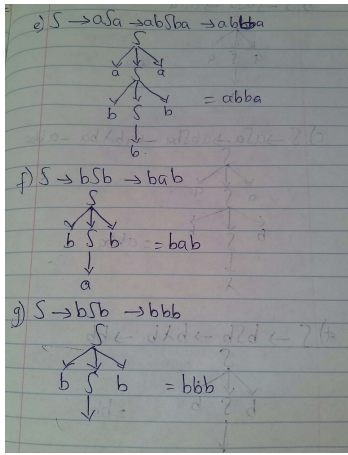 e) S → aSa → abSba → abbba
S
a S a
b S b = abba
b.
f) S → bSb → bab
S
b S b = bab
a
g) S → bSb → bbb
S
b S b = bbb